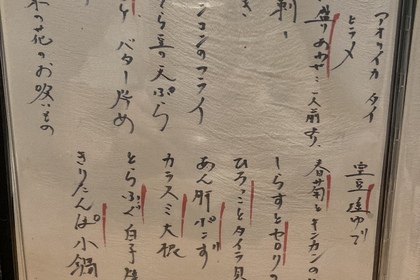 アオリイカ タイ
ヒラメ
盛りあわせ 二人前
刺
コンのフライ
ら豆の天ぷら
バター炒め
の花のお吸いもの
空豆塩ゆで
春菊とキンカンの
しらすとセロリの
ひろっことタイラ貝
あん肝ポンず
カラスミ大根
とらふぐ白子
きりたんぽ小鍋